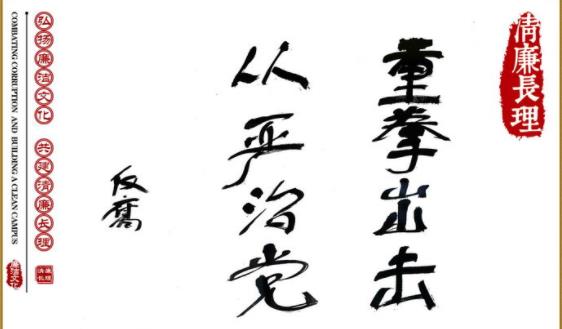 清廉長理
重拳出击
从严治党
弘扬廉洁文化 共建清廉长理
清廉
长理
COMBATING CORRUPTION AND BUILDING A CLEAN CAMPUS
廉洁文化